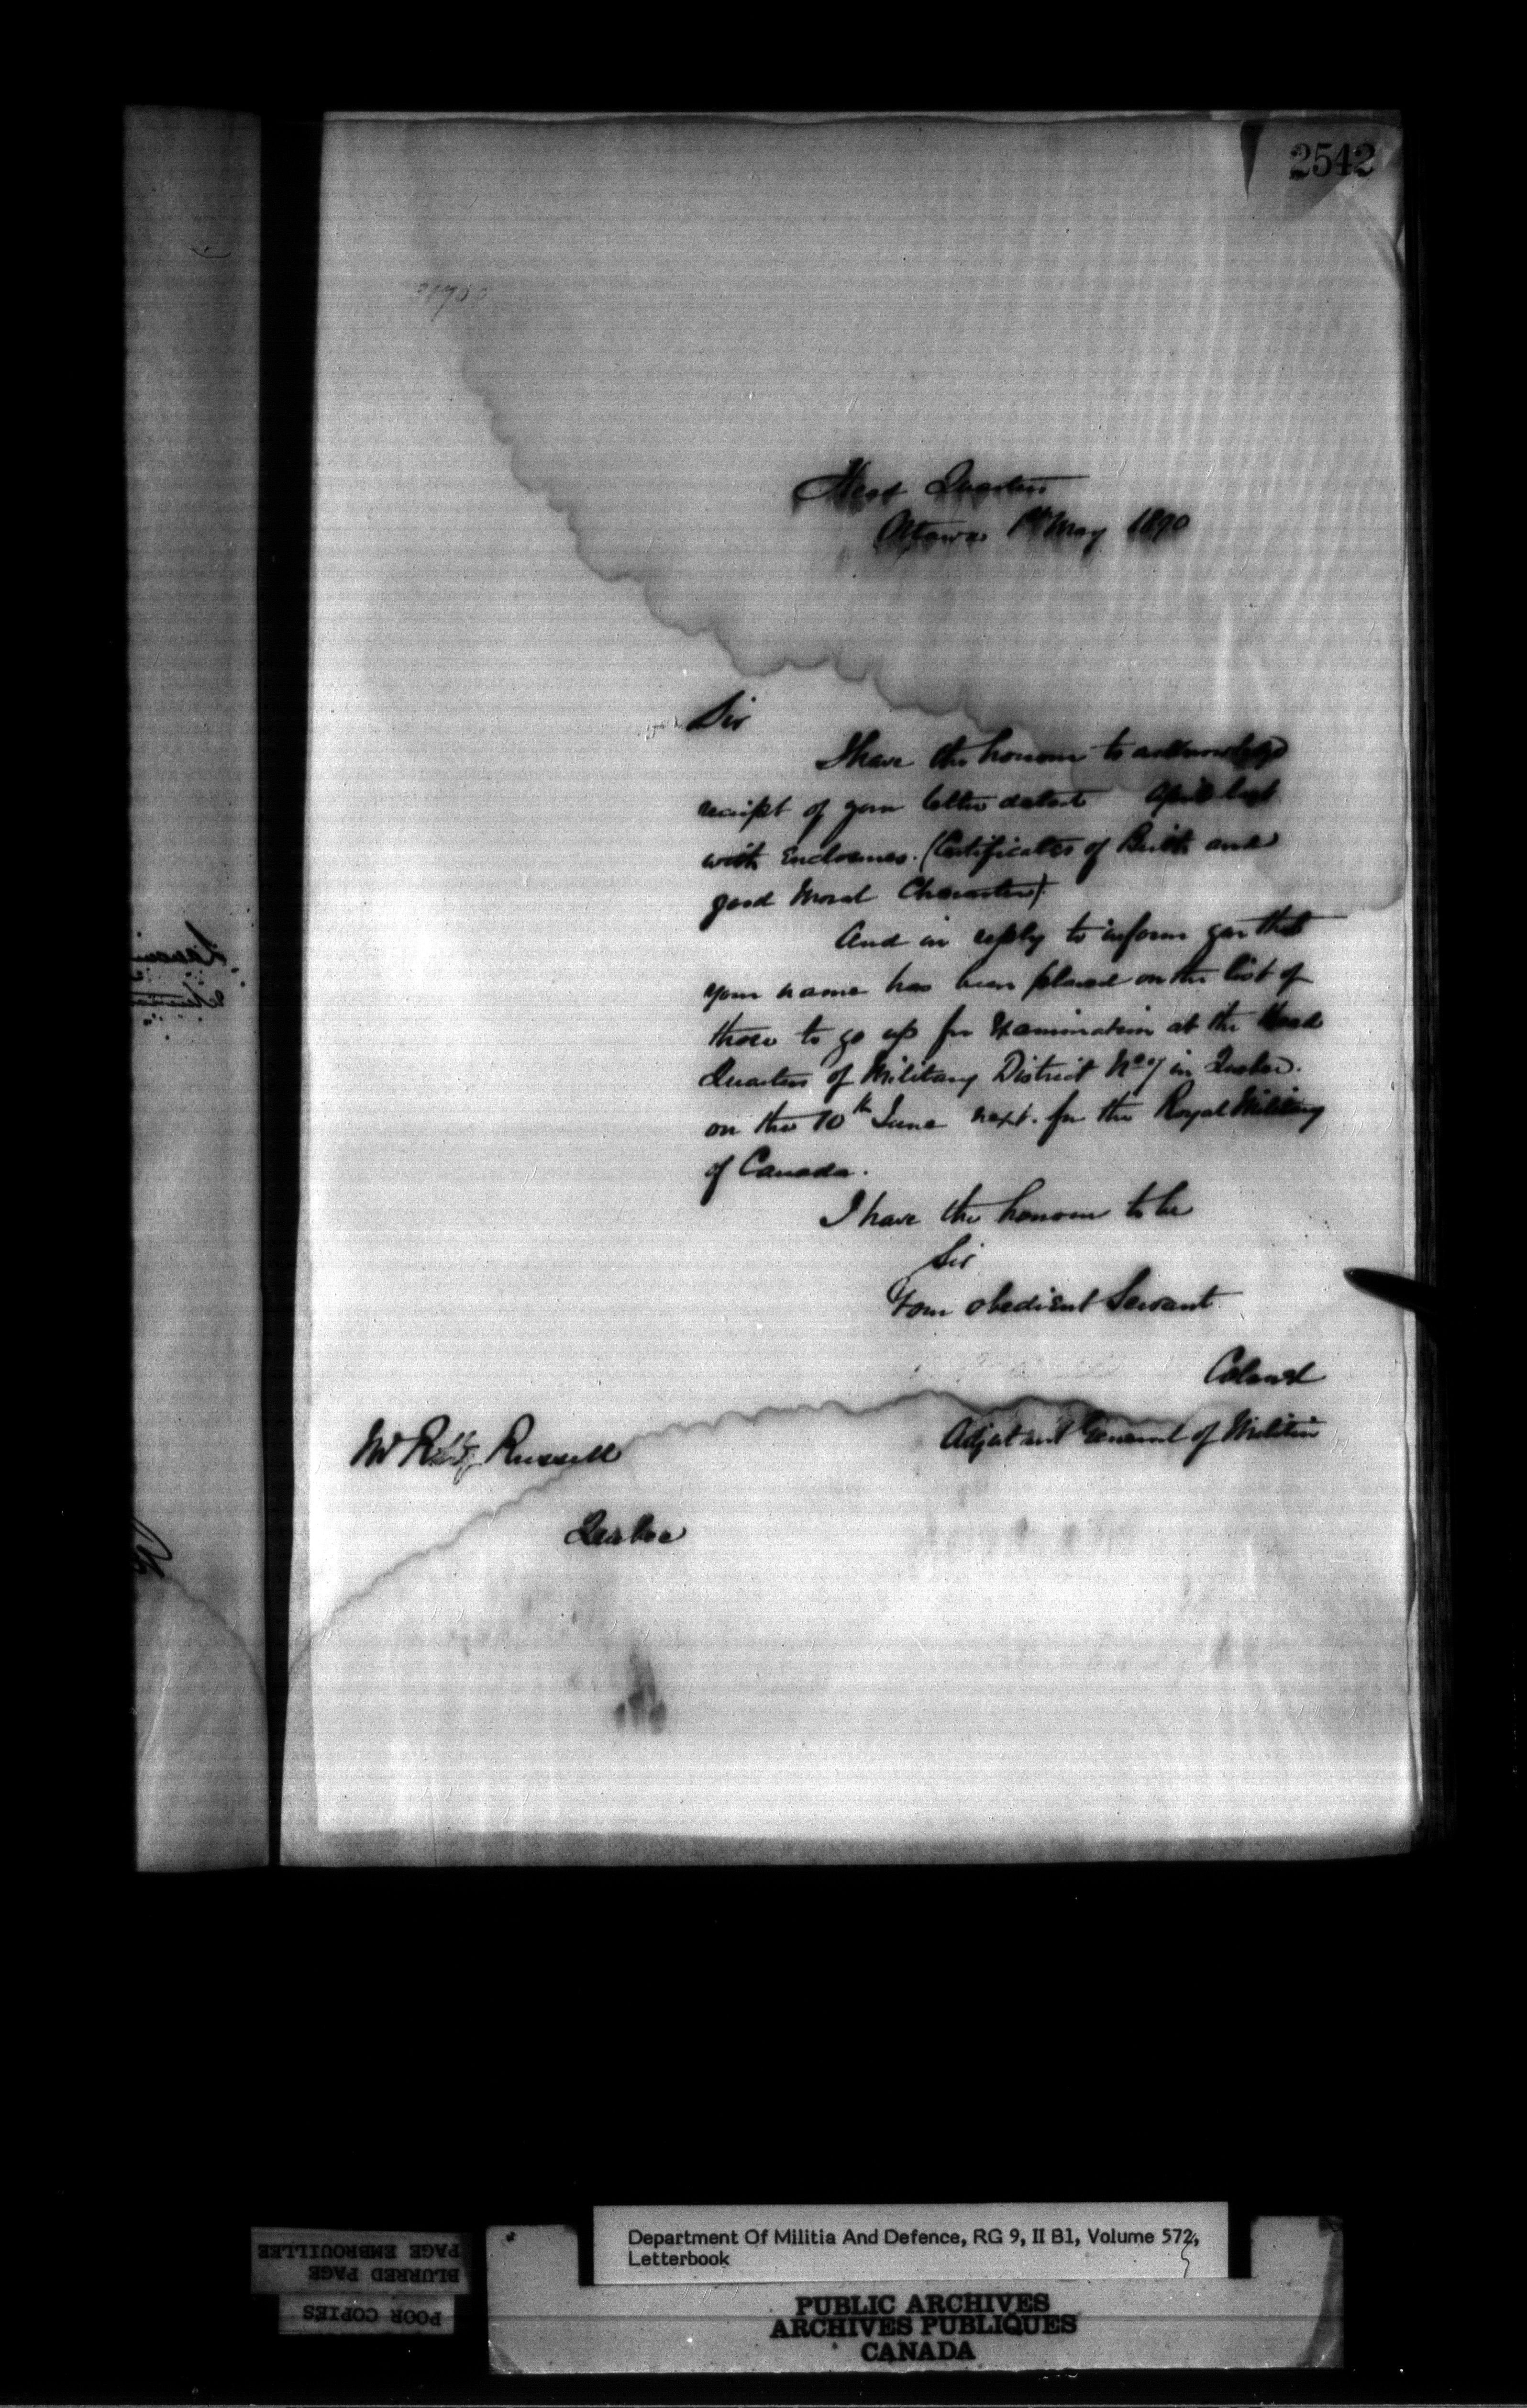 2542
Head Quarters
Ottawa 1st May 1890
Sir
I have the honour to acknowledge
receipt of your letter dated April last
with Enclosures. (Certificates of Birth and
good Moral Character)
And in reply to inform you that
your name has been placed on the list of
those to go up for Examination at the Head
Quarters of Military District No 7 in Quebec.
on the 10th June next. for the Royal Military
of Canada.
I have the honour to be
Sir
Your obedient Servant
Colonel
Adjutant General of Militia
Mr Russell
Quebec
Department Of Militia And Defence, RG 9, II B1, Volume 572,
Letterbook
PUBLIC ARCHIVES
ARCHIVES PUBLIQUES
CANADA
POOR COPIES
BLURRED PAGE
PAGE EMBROUILLEE